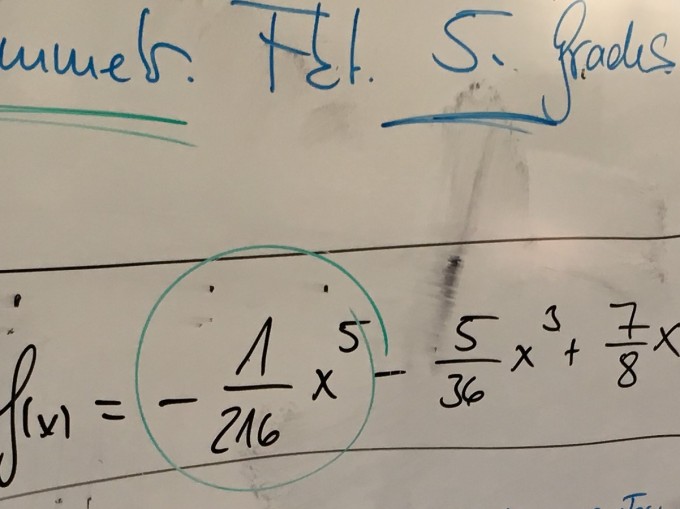 Fkt. 5. Grades
f(x) = - 1/216 x^5 - 5/36 x^3 + 7/8 x